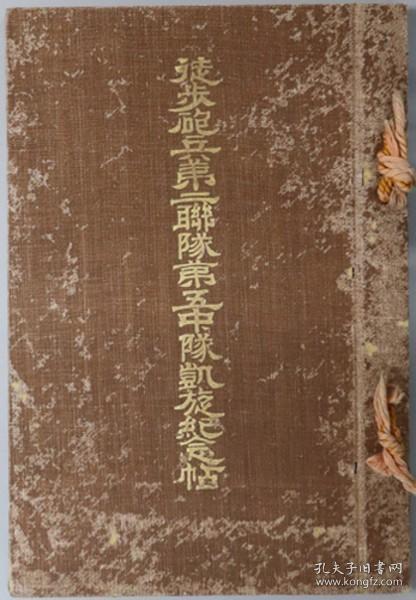 徒步砲兵第二聯隊第五中隊凱旋紀念帖
孔夫子旧书网
www.kongfz.com